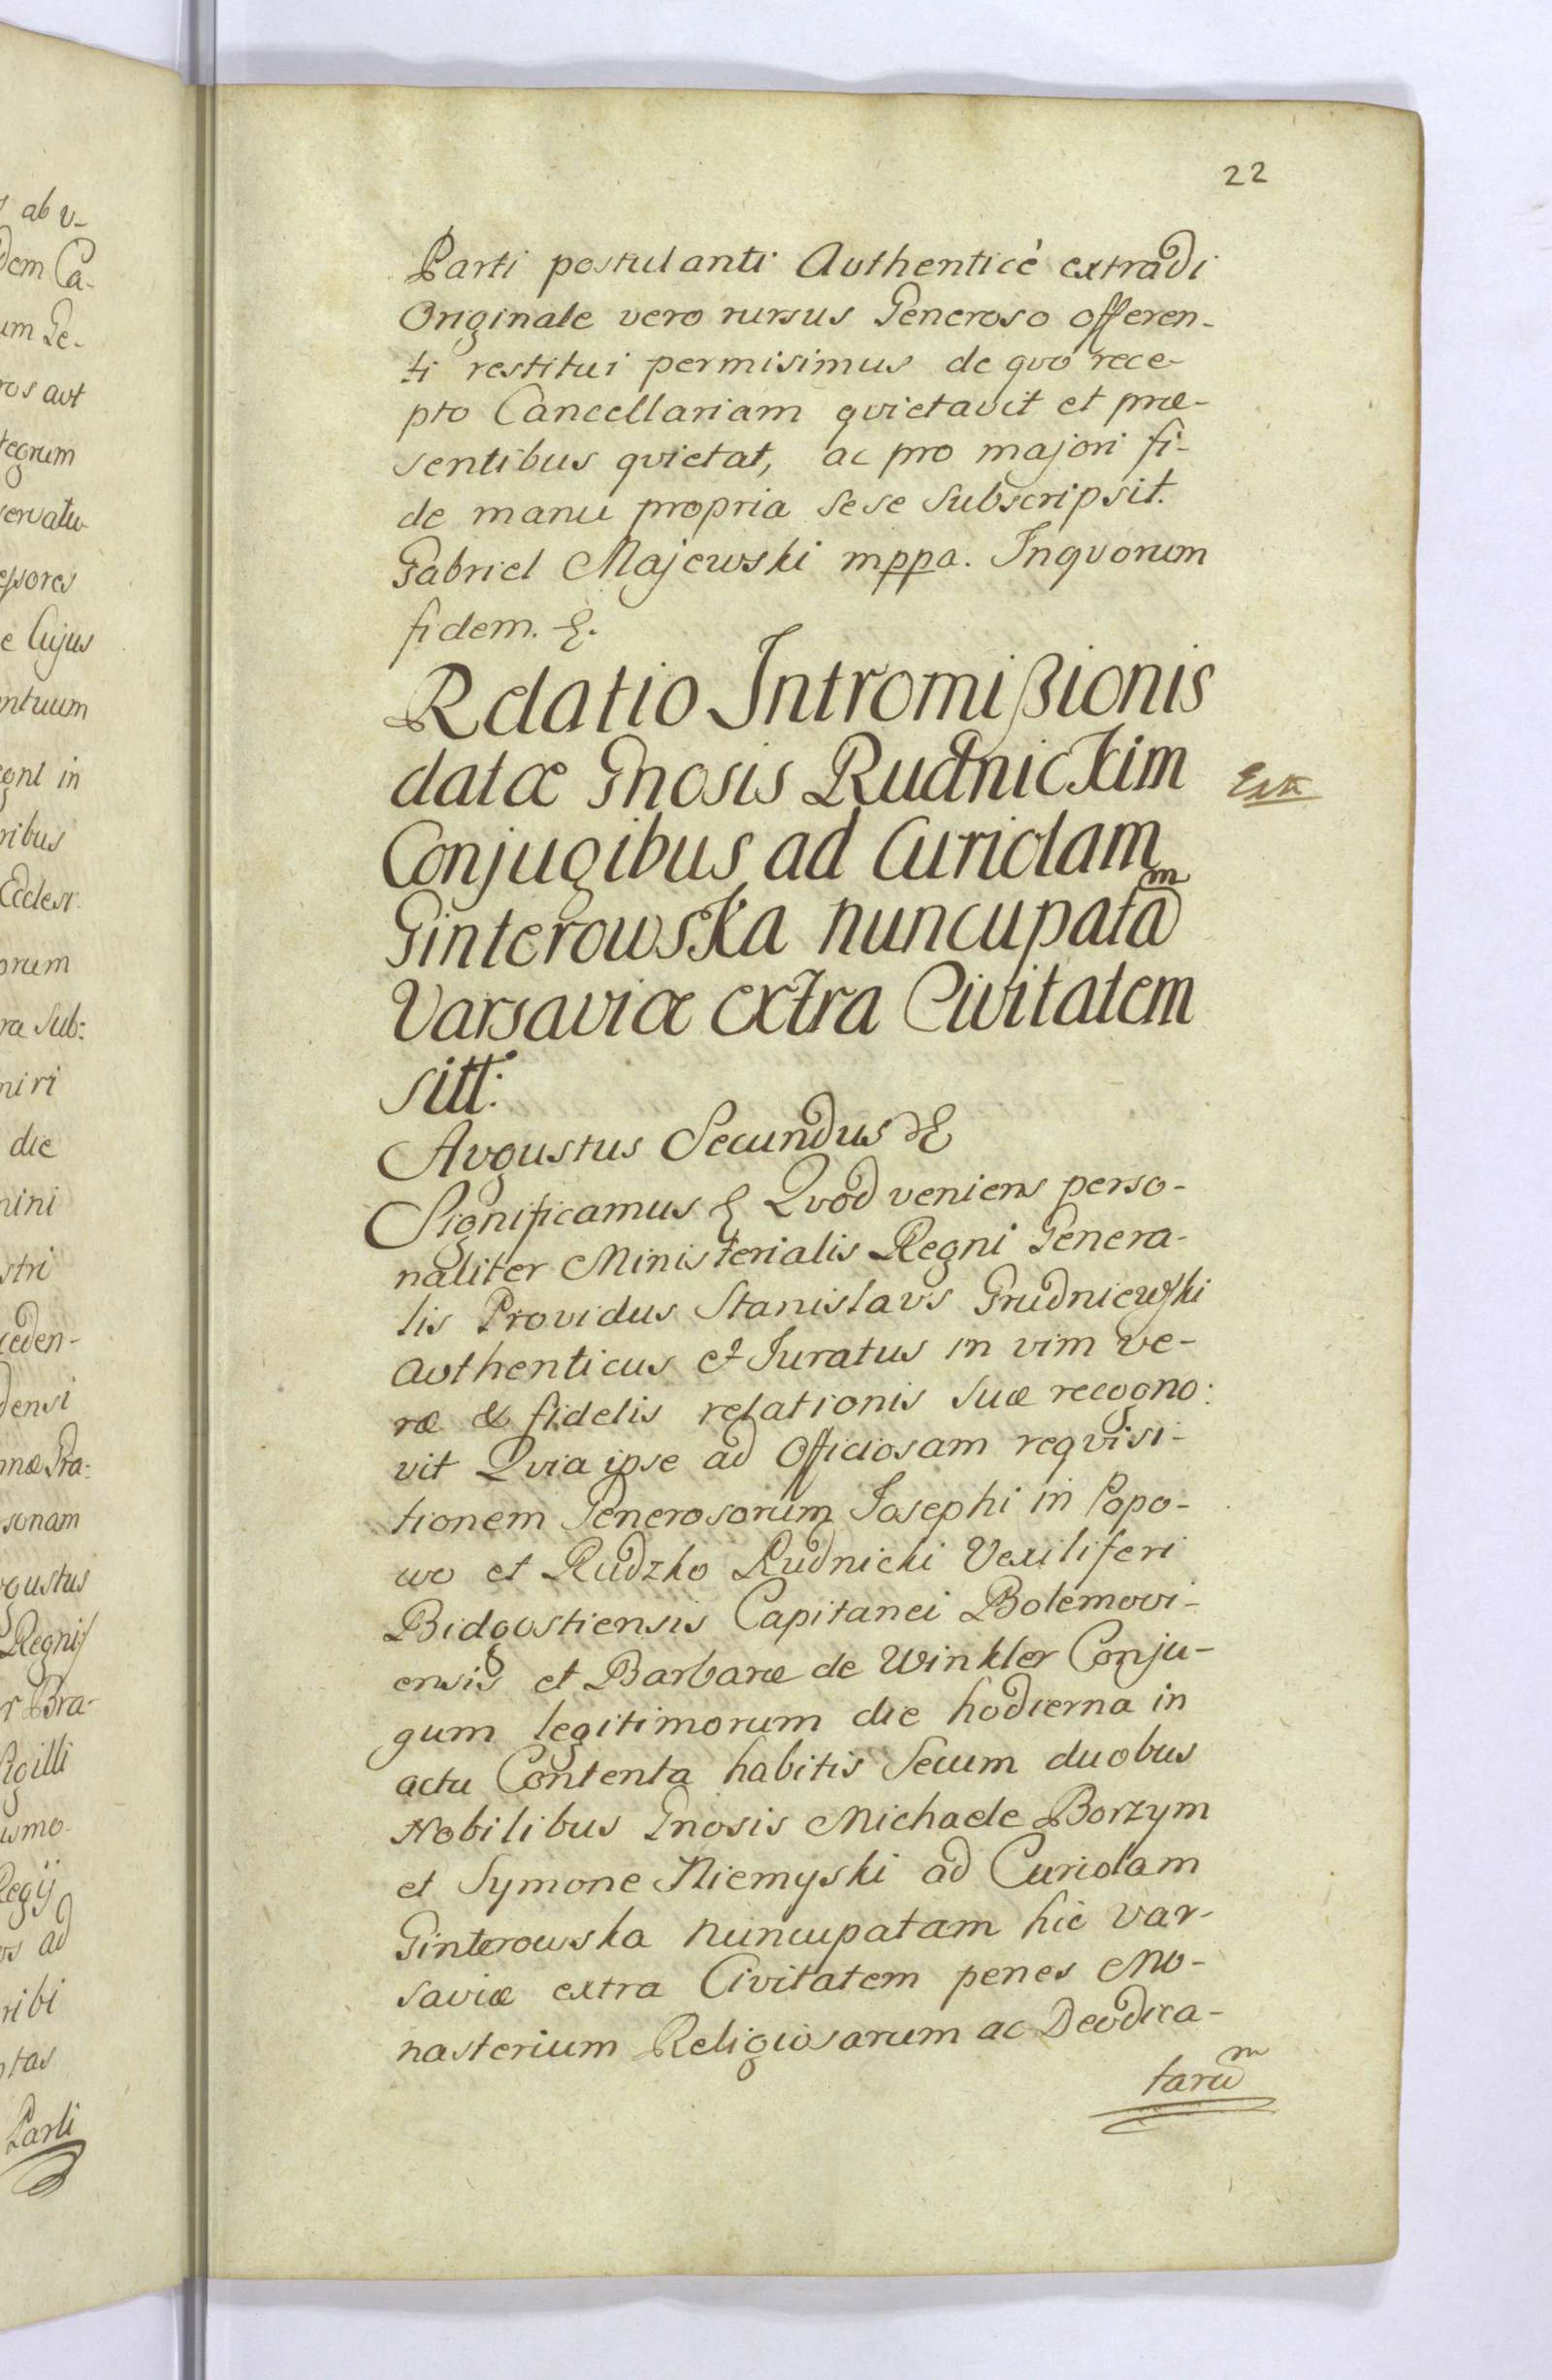 22
Parti postulanti Authenticè extradi
Originale vero rursus Generoso offeren-
ti restitui permisimus de qvo rece-
pto Cancellariam qvietavit et præ-
sentibus qvietat, ac pro majori fi-
de manu propria sese subscripsit.
Gabriel Majewski mppa. Inqvorum
fidem. &.
Relatio Intromißionis
datæ Gnosis Rudnickim
Conjugibus ad Curiolam
Ginterowska nuncupatam
Varsaviæ extra Civitatem
sitt:
Avgustus Secundus &
Significamus & Qvod veniens perso-
naliter Ministerialis Regni Genera-
lis Providus Stanislavs Grudniewski
avthenticus et Iuratus in vim ve-
ræ & fidelis relationis suæ recogno:
vit Qvia ipse ad Officiosam reqvisi-
tionem Generosorum Iosephi in Popo-
wo et Rudzko Rudnicki Vexiliferi
Bidgostiensis Capitanei Bolemovi-
ensis et Barbaræ de Winkler Conju-
gum legitimorum die hodierna in
actu Contenta habitis secum duobus
Nobilibus Gnosis Michaele Borzym
et Symone Niemyski ad Curiolam
Ginterowska nuncupatam hic Var-
saviæ extra Civitatem penes Mo-
nasterium Religiosarum ac Deodica-
tarum
s ab v-
dem Ca-
um Ge-
ros avt
tegrum
servatu-
essores
e Cujus
entuum
gont in
ribus
Eccles:
orum
ra Sub:
miri
die
mini
stri
ceden-
densi
mæ Gra:
sonam
vgustus
Regnis
r Bra-
Sigilli
ismo
Regij
os ad
ribi
ptas
Parti